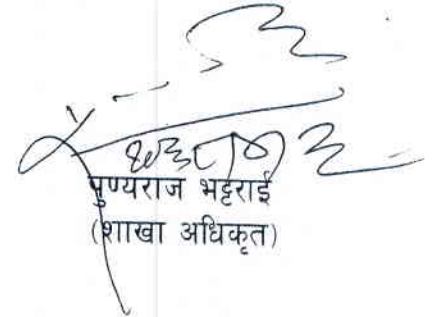 पुण्यराज भट्टराई
(शाखा अधिकृत)